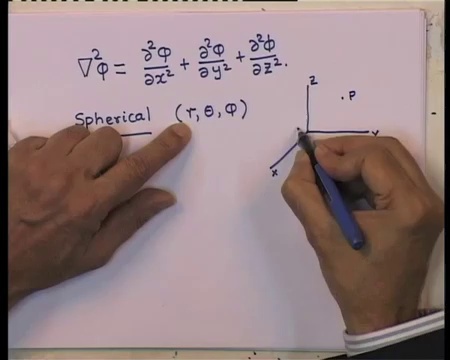 ∇²φ = ∂²φ/∂x² + ∂²φ/∂y² + ∂²φ/∂z².
Spherical (r, θ, φ)
z
P
y
x